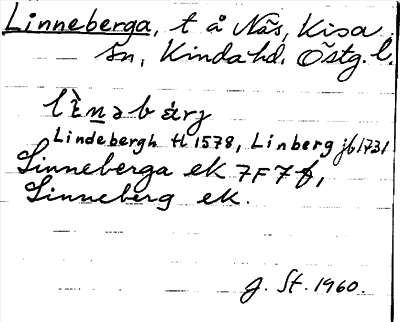 Linneberga, t å Näs, Kisa
sn, Kinda hd. Östg. l.
lɩ̀nəbárj
Lindebergh tl 1578, Linberg jb 1731
Linneberga ek 7F7f,
Linneberg ek.
J. St. 1960.